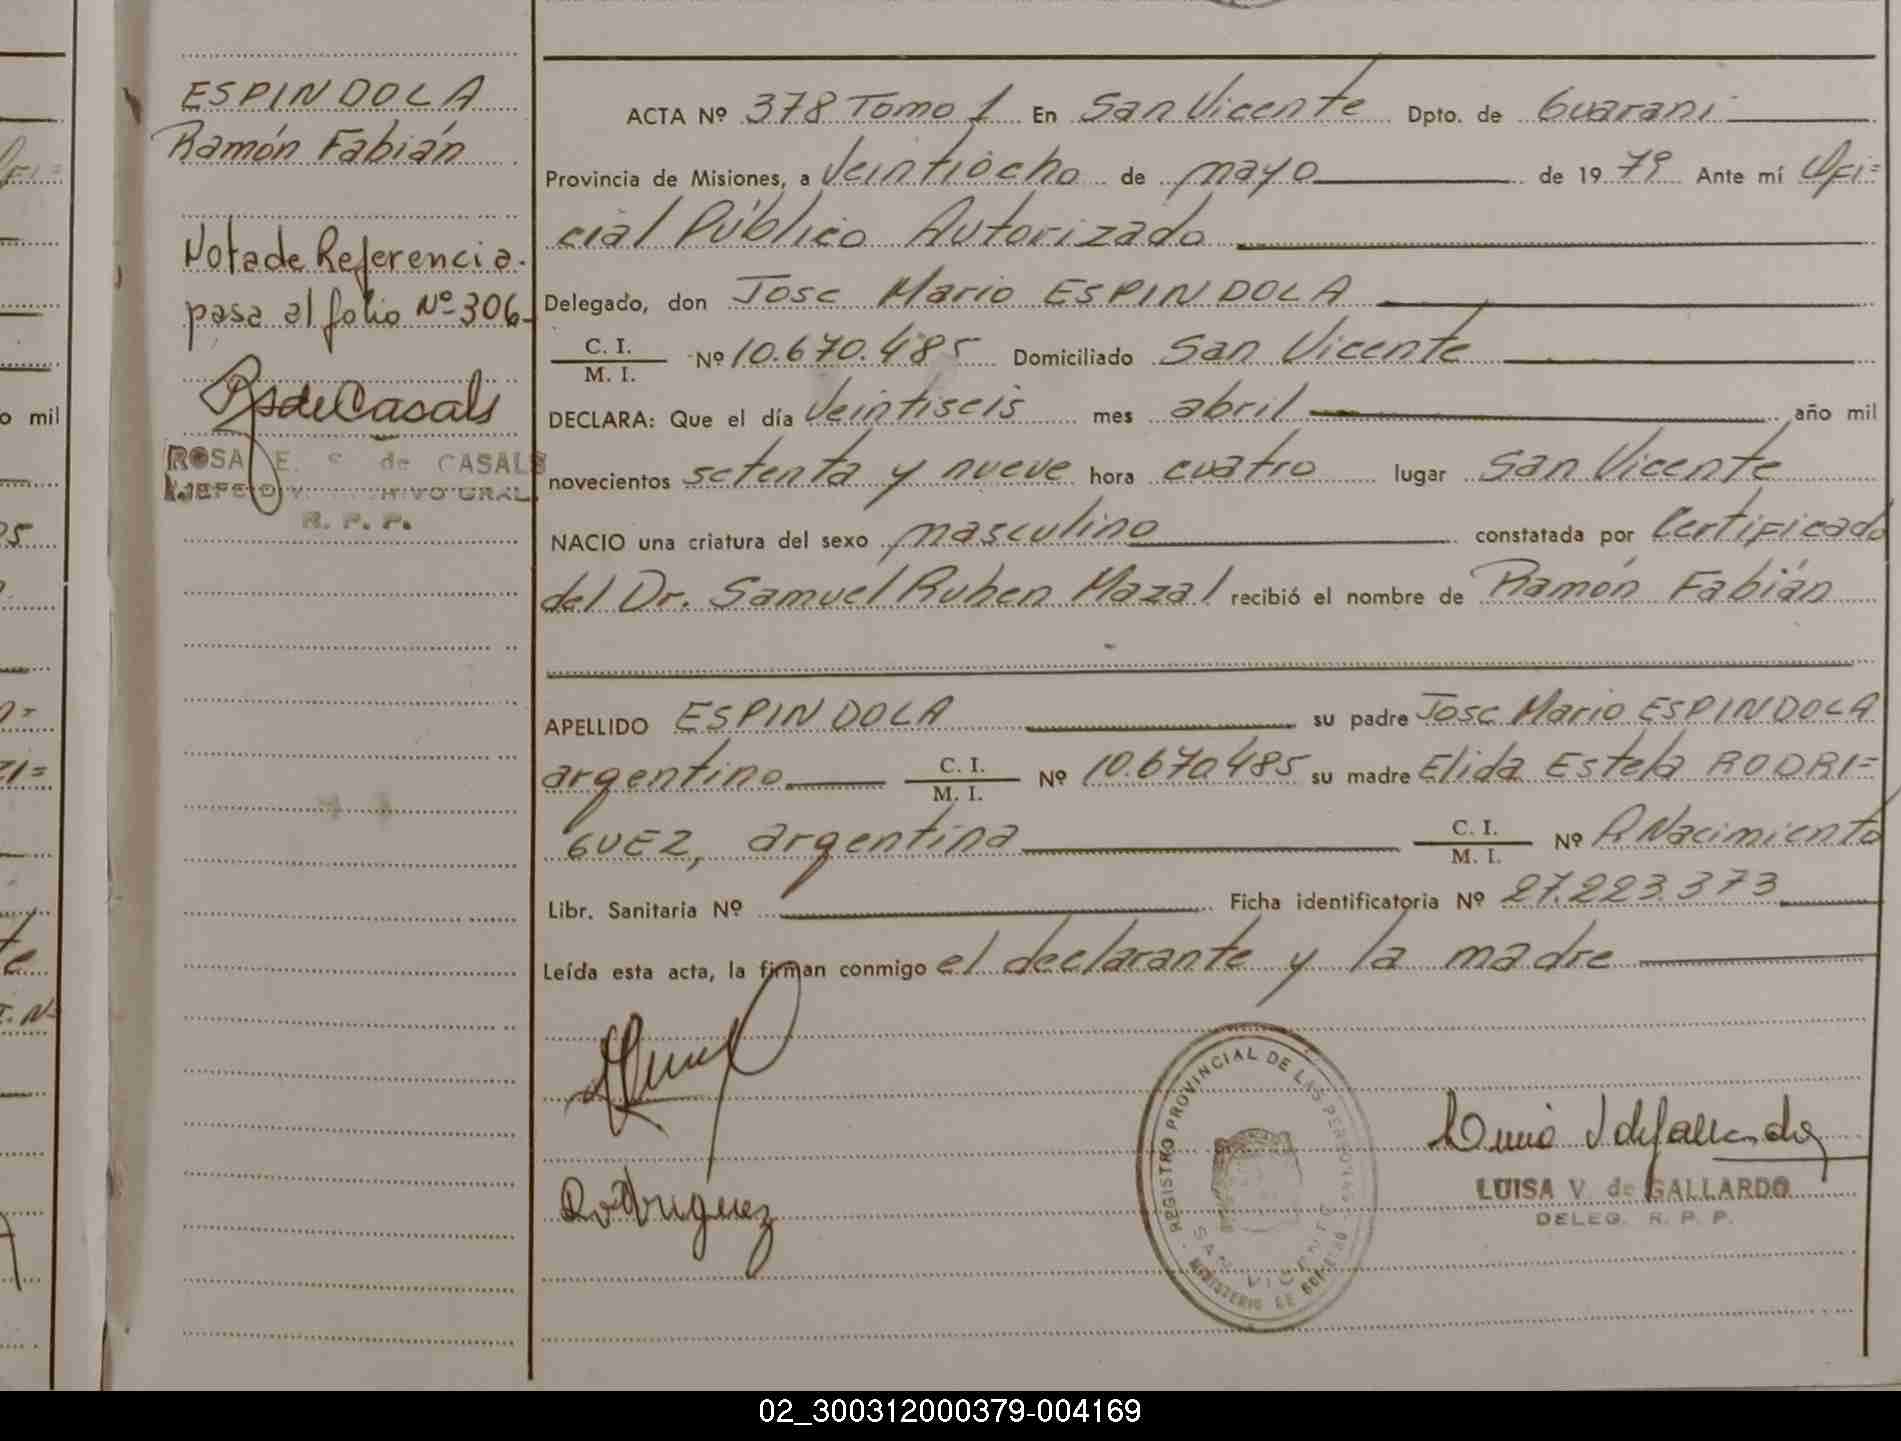 ESPINDOLA
Ramón Fabián
Nota de Referencia.
pasa al folio Nº 306
RsdeCasals
ROSA E. S. de CASALS
R. P. P.
ACTA Nº 378 Tomo 1 En San Vicente Dpto. de Guaraní
Provincia de Misiones, a Veintiocho de mayo de 19 79 Ante mí Ofi=
cial Público Autorizado
Delegado, don Jose Mario ESPINDOLA
C. I.
M. I. Nº 10.670.485 Domiciliado San Vicente
DECLARA: Que el día Veintiseis mes abril año mil
novecientos setenta y nueve hora cuatro lugar San Vicente
NACIO una criatura del sexo masculino constatada por Certificado
del Dr. Samuel Ruben Mazal recibió el nombre de Ramón Fabián
APELLIDO ESPINDOLA su padre Jose Mario ESPINDOLA
argentino C. I.
M. I. Nº 10.670485 su madre Elida Estela RODRI=
GUEZ, argentina C. I.
M. I. Nº P.Nacimiento
Libr. Sanitaria Nº Ficha identificatoria Nº 27.223.373
Leída esta acta, la firman conmigo el declarante y la madre
Rodriguez
REGISTRO PROVINCIAL DE LAS PERSONAS
SAN VICENTE
MINISTERIO DE GOBIERNO
LUISA V. de GALLARDO
DELEG. R. P. P.
02_300312000379-004169